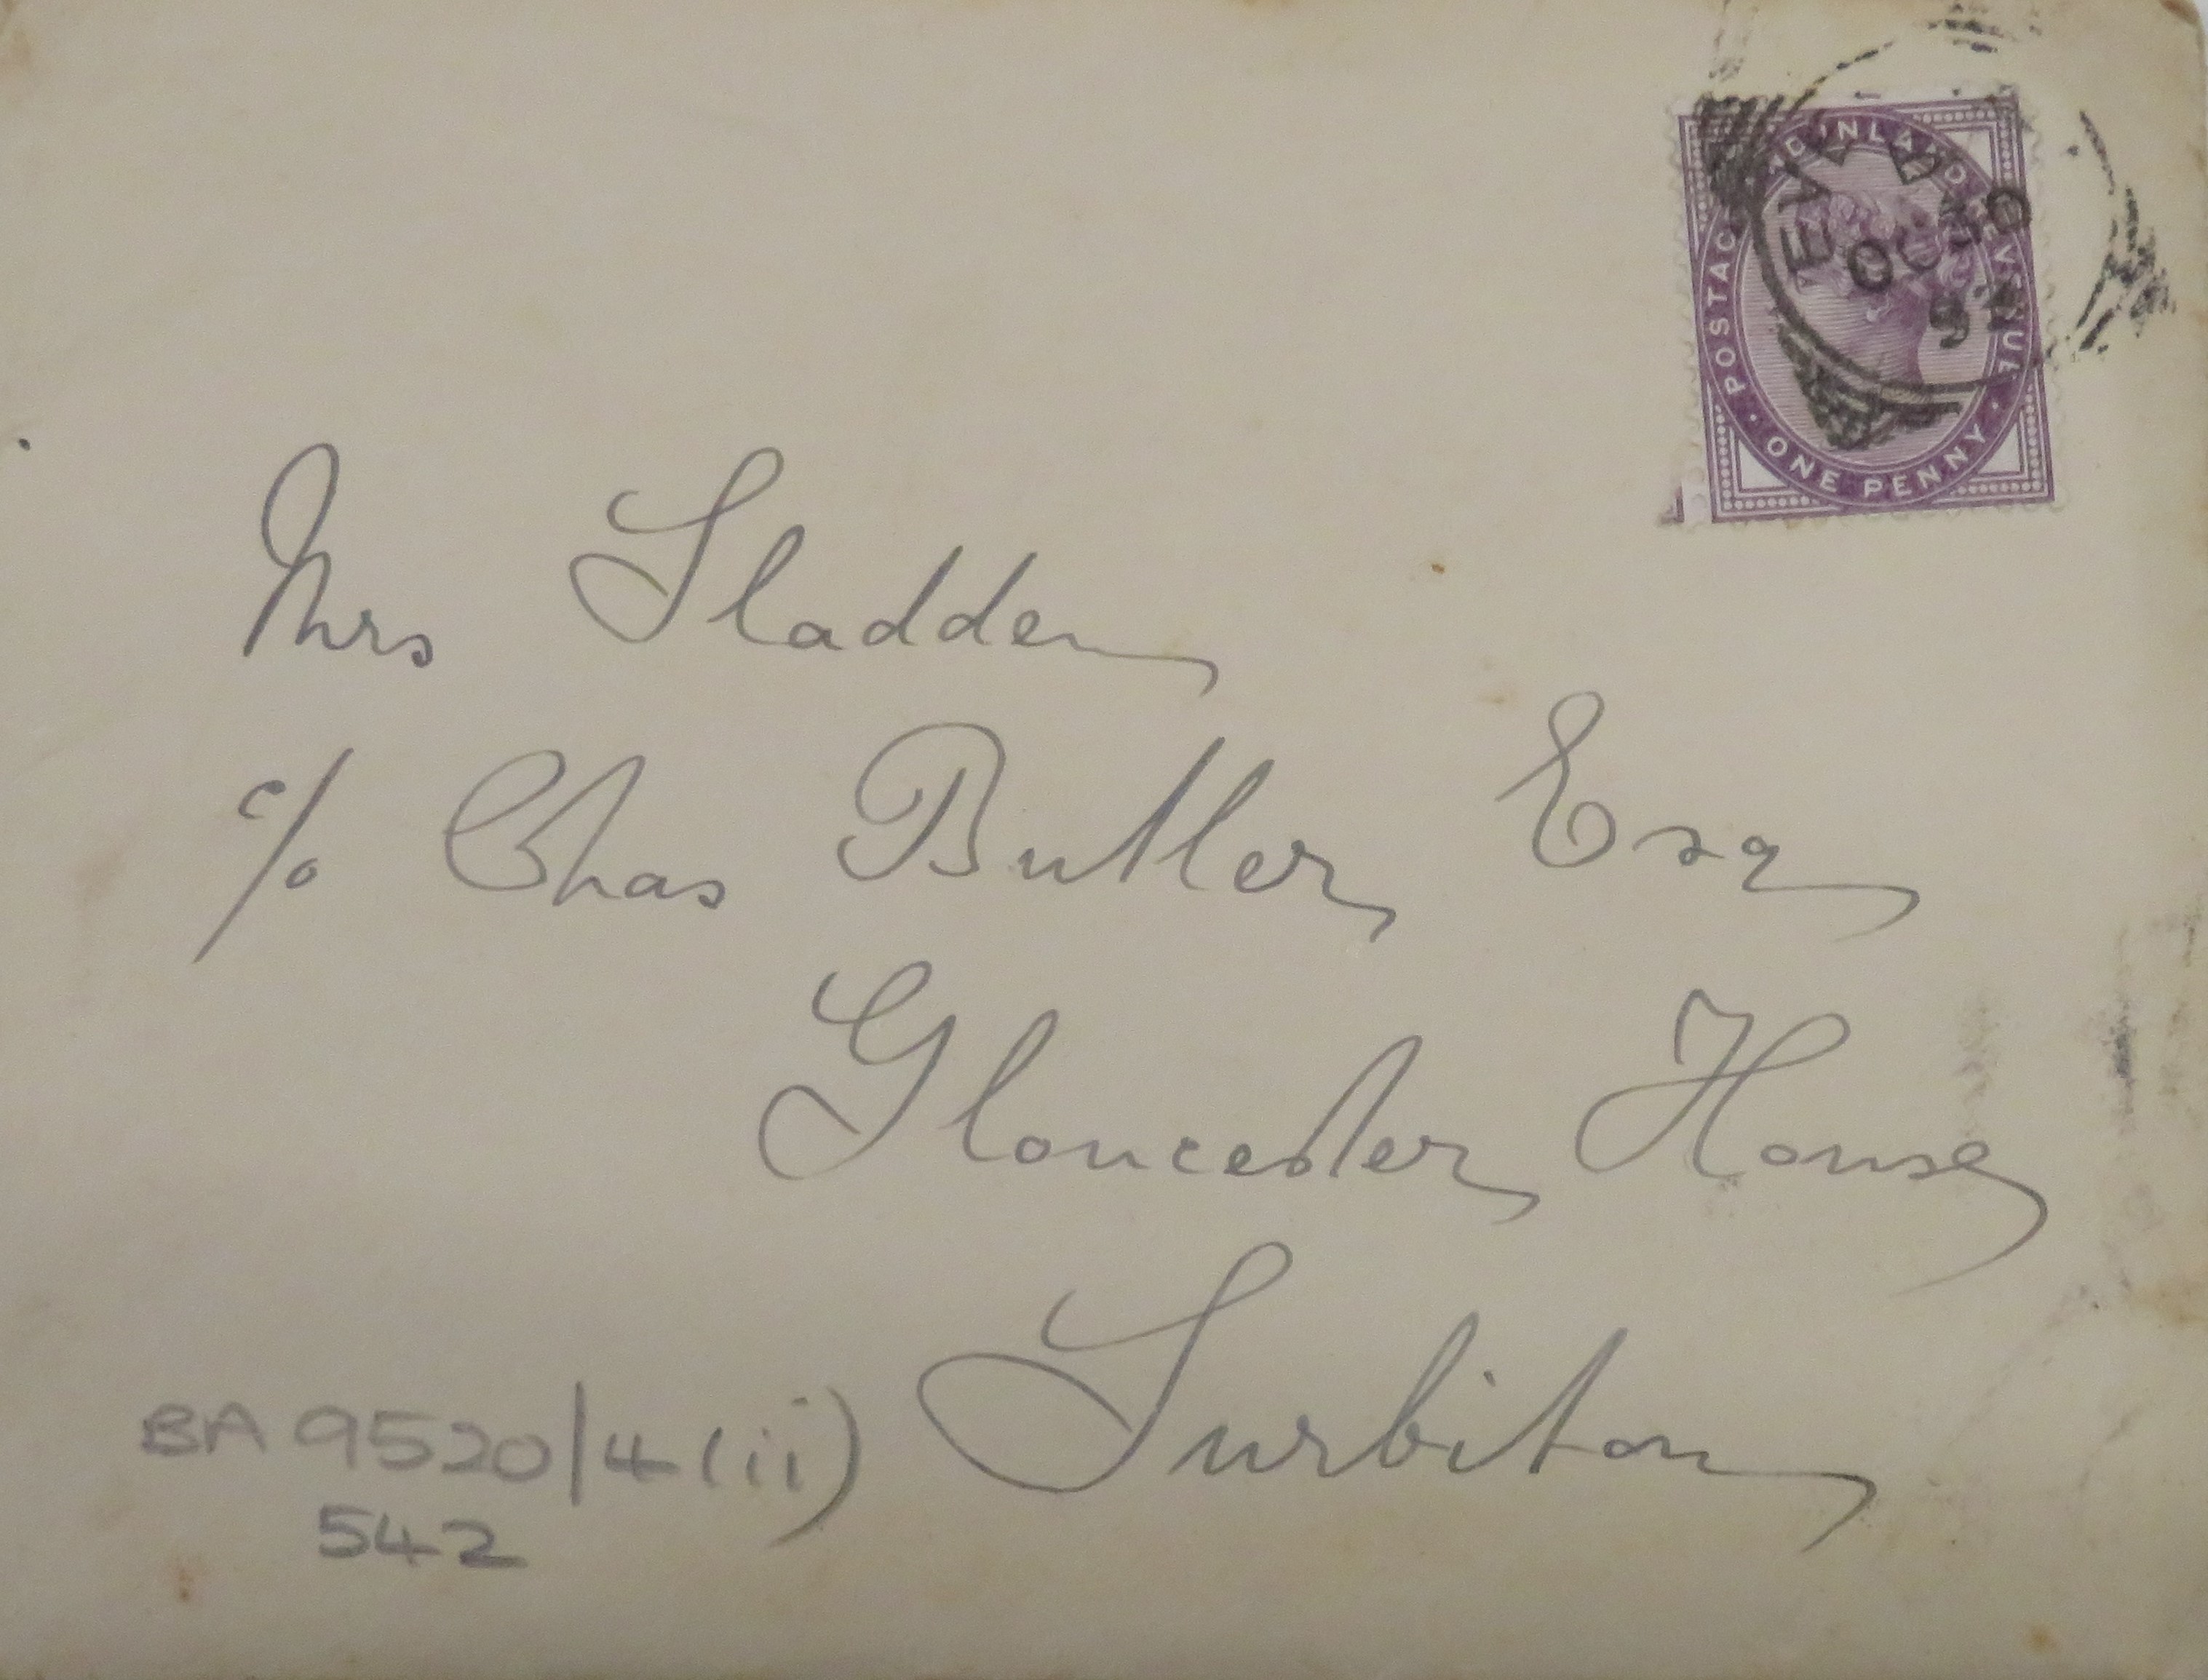 POSTAGE AND INLAND REVENUE
ONE PENNY
Mrs Sladden
c/o Chas Butler Esq
Gloucester House
Surbiton
BA 9520/4(ii)
542